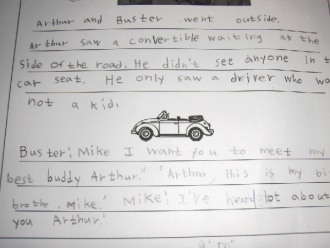 Arthur and Buster went outside.
Arthur saw a convertible waiting at the
side of the road. He didn't see anyone in t
car seat. He only saw a driver who wa
not a kid.
Buster: Mike I want you to meet my
best buddy Arthur." "Arthur, this is my bi
brothe. Mike." Mike: I've heard lot about
you Arthur."